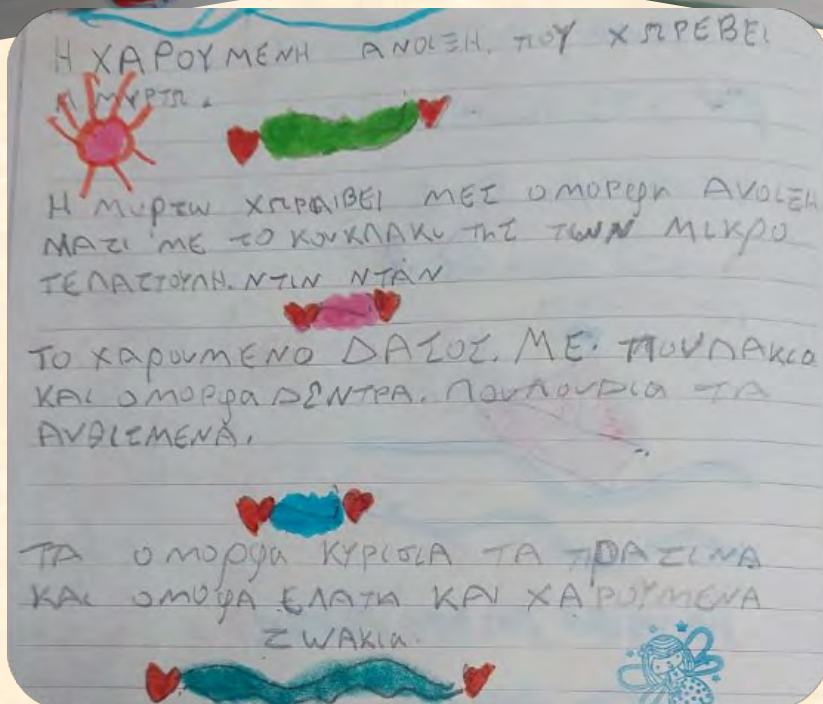 Η ΧΑΡΟΥΜΕΝΗ ΑΝΟΙΞΗ. ΠΟΥ ΧΩΡΕΒΕΙ
Η ΜΥΡΤΩ.
Η Μυρτω ΧΩΡΑΙΒΕΙ ΜΕΣ ομορφη ΑνΟΙΞΗ
ΜΑΖΙ ΜΕ ΤΟ ΚΟΥΚΛΑΚι τΗΣ ΜΙΚΡΟ
ΓΕΛΑΣΤΟΥΛΗ. ΝΤΙΝ ΝΤΑΝ
ΤΟ χαρουμενο ΔΑΣΟΣ. ΜΕ. ΠΟυΛΑΚια
ΚΑΙ ομορφα ΔΕΝΤΡΑ. ΛουΛουΔια ΤΑ
ΑνΘΙΣΜΕΝΑ.
ΤΑ ομορφα ΚΥΡΙσΙΑ ΤΑ ΠΡΑΣΙΝΑ
ΚΑΙ ομοφα ΕΛΑΤΑ ΚΑΙ ΧΑΡΟΥΜΕΝΑ
ΖωΑΚια.